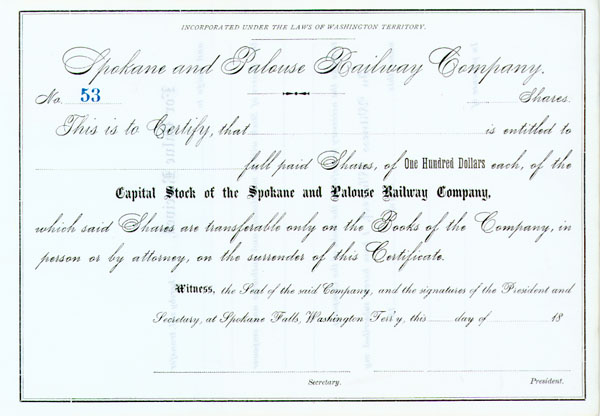 INCORPORATED UNDER THE LAWS OF WASHINGTON TERRITORY.
Spokane and Palouse Railway Company.
No. 53 Shares.
This is to Certify, that is entitled to
full paid Shares, of One Hundred Dollars each, of the
Capital Stock of the Spokane and Palouse Railway Company,
which said Shares are transferable only on the Books of the Company, in
person or by attorney, on the surrender of this Certificate.
Witness, the Seal of the said Company, and the signatures of the President and
Secretary, at Spokane Falls, Washington Terr'y, this day of 18
Secretary. President.